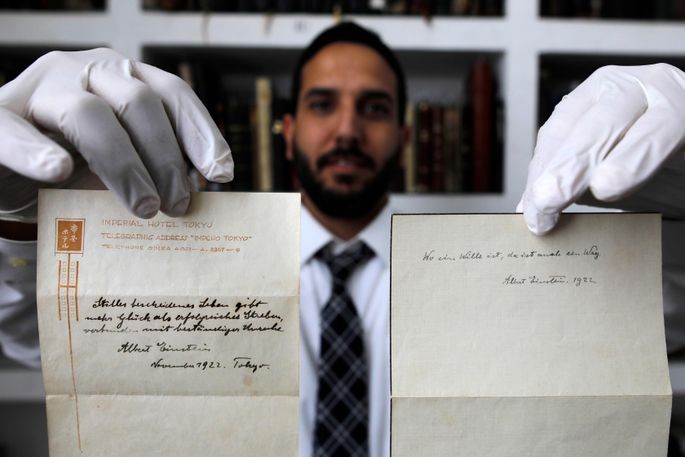 帝国
ホテル
IMPERIAL HOTEL TOKYO
TELEGRAPHIC ADDRESS "IMPEHO TOKYO"
TELEPHONE GINZA
Stilles bescheidenes Leben gibt
mehr Glück als erfolgreiches Streben,
verbunden mit beständiger Unruhe.
Albert Einstein
November 1922. Tokyo.
Wo ein Wille ist, da ist auch ein Weg.
Albert Einstein. 1922